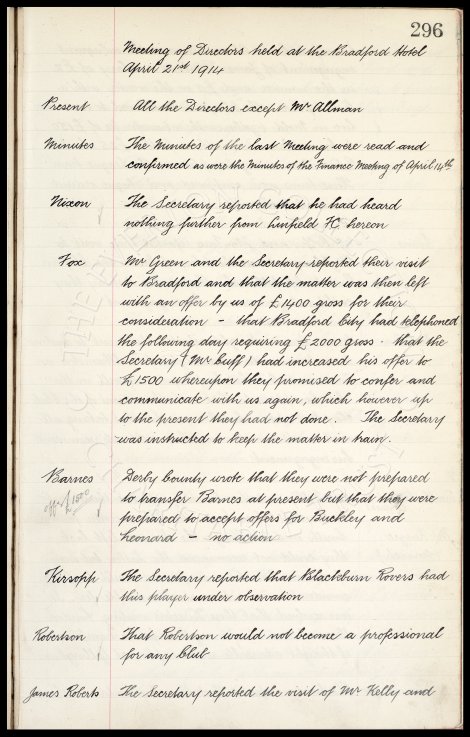 296
Meeting of Directors held at the Bradford Hotel
April 21st 1914
Present All the Directors except Mr Allman
Minutes The Minutes of the last Meeting were read and
confirmed as were the Minutes of the Finance Meeting of April 14th
Nixon The Secretary reported that he had heard
nothing further from Linfield FC hereon
Fox Mr Green and the Secretary reported their visit
to Bradford and that the matter was then left
with an offer by us of £1400 gross for their
consideration – that Bradford City had telephoned
the following day requiring £2000 gross. that the
Secretary (Mr Cuff) had increased his offer to
£1500 whereupon they promised to confer and
communicate with us again, which however up
to the present they had not done. The Secretary
was instructed to keep the matter in train.
Barnes Derby County wrote that they were not prepared
offer £1500 to transfer Barnes at present but that they were
prepared to accept offers for Buckley and
Leonard – no action –
Kirsopp The Secretary reported that Blackburn Rovers had
this player under observation
Robertson That Robertson would not become a professional
for any Club
James Roberts The Secretary reported the visit of Mr Kelly and